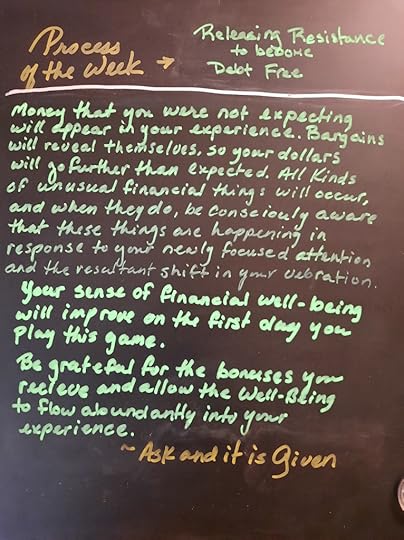 Process of the Week → Releasing Resistance
to become
Debt Free
Money that you were not expecting
will appear in your experience. Bargains
will reveal themselves, so your dollars
will go further than expected. All Kinds
of unusual financial things will occur,
and when they do, be consciously aware
that these things are happening in
response to your newly focused attention
and the resultant shift in your vibration.
Your sense of financial well-being
will improve on the first day you
play this game.
Be grateful for the bonuses you
recieve and allow the Well-Being
to flow aloundantly into your
experience.
~ Ask and it is Given